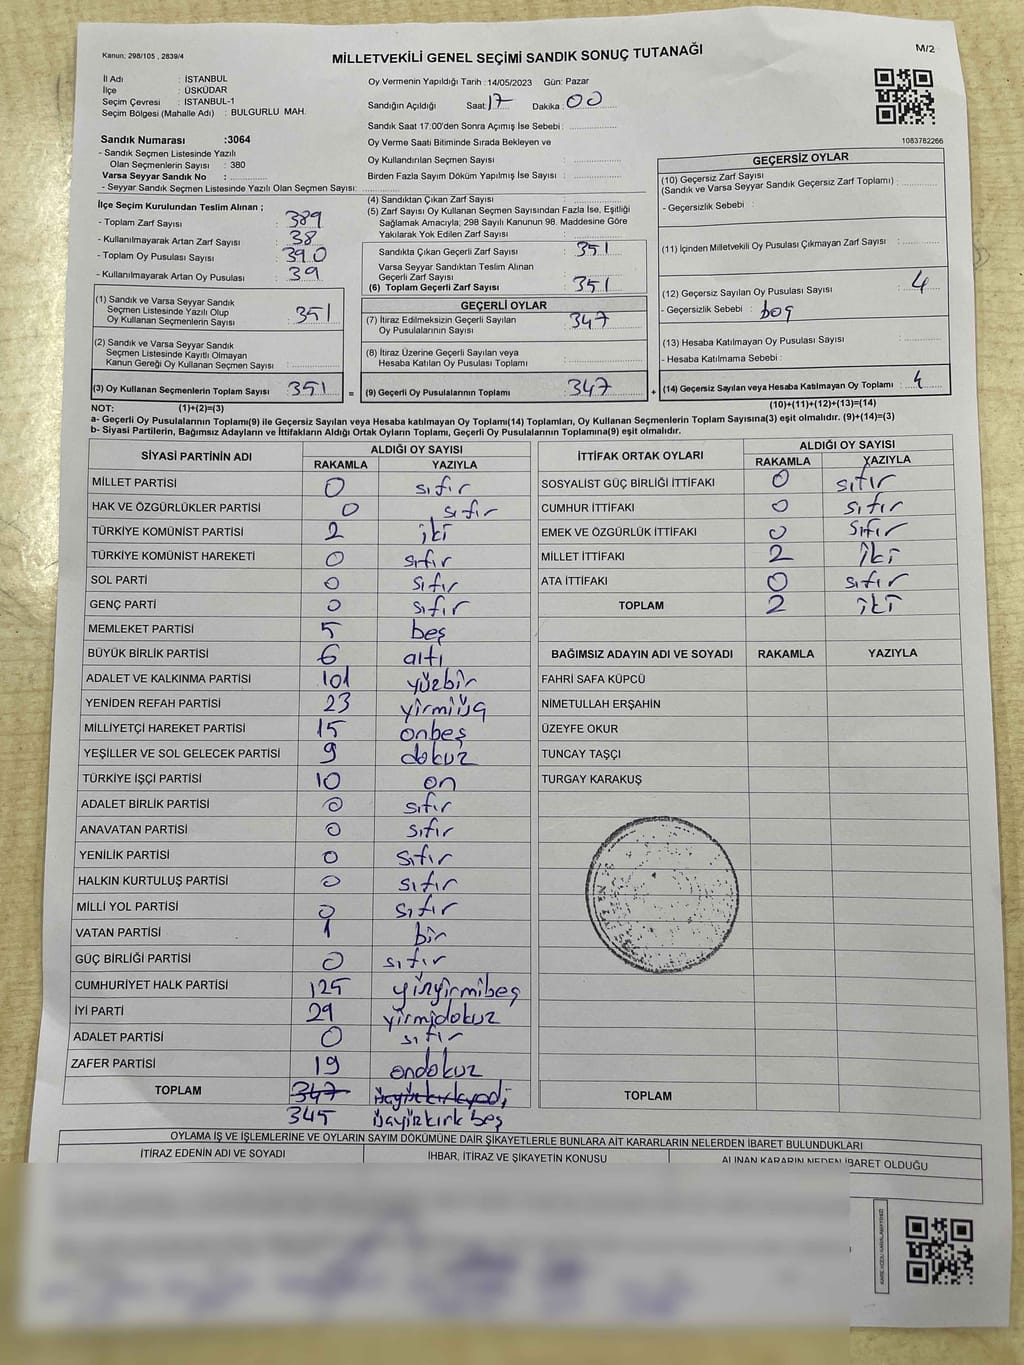 Kanun: 298/105 , 2839/4
MİLLETVEKİLİ GENEL SEÇİMİ SANDIK SONUÇ TUTANAĞI
M/2
İl Adı : İSTANBUL
İlçe : ÜSKÜDAR
Seçim Çevresi : İSTANBUL-1
Seçim Bölgesi (Mahalle Adı) : BULGURLU MAH.
Sandık Numarası :3064
- Sandık Seçmen Listesinde Yazılı
Olan Seçmenlerin Sayısı : 380
Varsa Seyyar Sandık No :
- Seyyar Sandık Seçmen Listesinde Yazılı Olan Seçmen Sayısı:
Oy Vermenin Yapıldığı Tarih :14/05/2023 Gün: Pazar
Sandığın Açıldığı Saat: 17 Dakika : 00
Sandık Saat 17:00'den Sonra Açımış İse Sebebi :
Oy Verme Saati Bitiminde Sırada Bekleyen ve
Oy Kullandırılan Seçmen Sayısı :
Birden Fazla Sayım Döküm Yapılmış İse Sayısı :
1083782266
İlçe Seçim Kurulundan Teslim Alınan ;
- Toplam Zarf Sayısı : 389
- Kullanılmayarak Artan Zarf Sayısı : 38
- Toplam Oy Pusulası Sayısı : 390
- Kullanılmayarak Artan Oy Pusulası : 39
(1) Sandık ve Varsa Seyyar Sandık
Seçmen Listesinde Yazılı Olup
Oy Kullanan Seçmenlerin Sayısı : 351
(2) Sandık ve Varsa Seyyar Sandık
Seçmen Listesinde Kayıtlı Olmayan
Kanun Gereği Oy Kullanan Seçmen Sayısı :
(3) Oy Kullanan Seçmenlerin Toplam Sayısı : 351
(4) Sandıktan Çıkan Zarf Sayısı :
(5) Zarf Sayısı Oy Kullanan Seçmen Sayısından Fazla İse, Eşitliği
Sağlamak Amacıyla; 298 Sayılı Kanunun 98. Maddesine Göre
Yakılarak Yok Edilen Zarf Sayısı :
Sandıkta Çıkan Geçerli Zarf Sayısı : 351
Varsa Seyyar Sandıktan Teslim Alınan
Geçerli Zarf Sayısı :
(6) Toplam Geçerli Zarf Sayısı : 351
GEÇERLİ OYLAR
(7) İtiraz Edilmeksizin Geçerli Sayılan
Oy Pusulalarının Sayısı : 347
(8) İtiraz Üzerine Geçerli Sayılan veya
Hesaba Katılan Oy Pusulası Toplamı :
= (9) Geçerli Oy Pusulalarının Toplamı : 347 +
GEÇERSİZ OYLAR
(10) Geçersiz Zarf Sayısı
(Sandık ve Varsa Seyyar Sandık Geçersiz Zarf Toplamı) :
- Geçersizlik Sebebi :
(11) İçinden Milletvekili Oy Pusulası Çıkmayan Zarf Sayısı :
(12) Geçersiz Sayılan Oy Pusulası Sayısı : 4
- Geçersizlik Sebebi : boş
(13) Hesaba Katılmayan Oy Pusulası Sayısı :
- Hesaba Katılmama Sebebi :
(14) Geçersiz Sayılan veya Hesaba Katılmayan Oy Toplamı : 4
NOT: (1)+(2)=(3)
(10)+(11)+(12)+(13)=(14)
a- Geçerli Oy Pusulalarının Toplamı(9) ile Geçersiz Sayılan veya Hesaba katılmayan Oy Toplamı(14) Toplamları, Oy Kullanan Seçmenlerin Toplam Sayısına(3) eşit olmalıdır. (9)+(14)=(3)
b- Siyasi Partilerin, Bağımsız Adayların ve İttifakların Aldığı Ortak Oyların Toplamı, Geçerli Oy Pusulalarının Toplamına(9) eşit olmalıdır.
SİYASİ PARTİNİN ADI ALDIĞI OY SAYISI
RAKAMLA YAZIYLA
MİLLET PARTİSİ 0 sıfır
HAK VE ÖZGÜRLÜKLER PARTİSİ 0 sıfır
TÜRKİYE KOMÜNİST PARTİSİ 2 iki
TÜRKİYE KOMÜNİST HAREKETİ 0 sıfır
SOL PARTİ 0 sıfır
GENÇ PARTİ 0 sıfır
MEMLEKET PARTİSİ 5 beş
BÜYÜK BİRLİK PARTİSİ 6 altı
ADALET VE KALKINMA PARTİSİ 101 yüzbir
YENİDEN REFAH PARTİSİ 23 yirmiüç
MİLLİYETÇİ HAREKET PARTİSİ 15 onbeş
YEŞİLLER VE SOL GELECEK PARTİSİ 9 dokuz
TÜRKİYE İŞÇİ PARTİSİ 10 on
ADALET BİRLİK PARTİSİ 0 sıfır
ANAVATAN PARTİSİ 0 sıfır
YENİLİK PARTİSİ 0 sıfır
HALKIN KURTULUŞ PARTİSİ 0 sıfır
MİLLİ YOL PARTİSİ 0 sıfır
VATAN PARTİSİ 1 bir
GÜÇ BİRLİĞİ PARTİSİ 0 sıfır
CUMHURİYET HALK PARTİSİ 125 yüzyirmibeş
İYİ PARTİ 29 yirmidokuz
ADALET PARTİSİ 0 sıfır
ZAFER PARTİSİ 19 ondokuz
TOPLAM 347 üçyüzkırkyedi
345 üçyüzkırk beş
İTTİFAK ORTAK OYLARI ALDIĞI OY SAYISI
RAKAMLA YAZIYLA
SOSYALİST GÜÇ BİRLİĞİ İTTİFAKI 0 sıfır
CUMHUR İTTİFAKI 0 sıfır
EMEK VE ÖZGÜRLÜK İTTİFAKI 0 sıfır
MİLLET İTTİFAKI 2 iki
ATA İTTİFAKI 0 sıfır
TOPLAM 2 iki
BAĞIMSIZ ADAYIN ADI VE SOYADI RAKAMLA YAZIYLA
FAHRİ SAFA KÜPCÜ
NİMETULLAH ERŞAHİN
ÜZEYFE OKUR
TUNCAY TAŞÇI
TURGAY KARAKUŞ
TOPLAM
OYLAMA İŞ VE İŞLEMLERİNE VE OYLARIN SAYIM DÖKÜMÜNE DAİR ŞİKAYETLERLE BUNLARA AİT KARARLARIN NELERDEN İBARET BULUNDUKLARI
İTİRAZ EDENİN ADI VE SOYADI İHBAR, İTİRAZ VE ŞİKAYETİN KONUSU ALINAN KARARIN NEDEN İBARET OLDUĞU